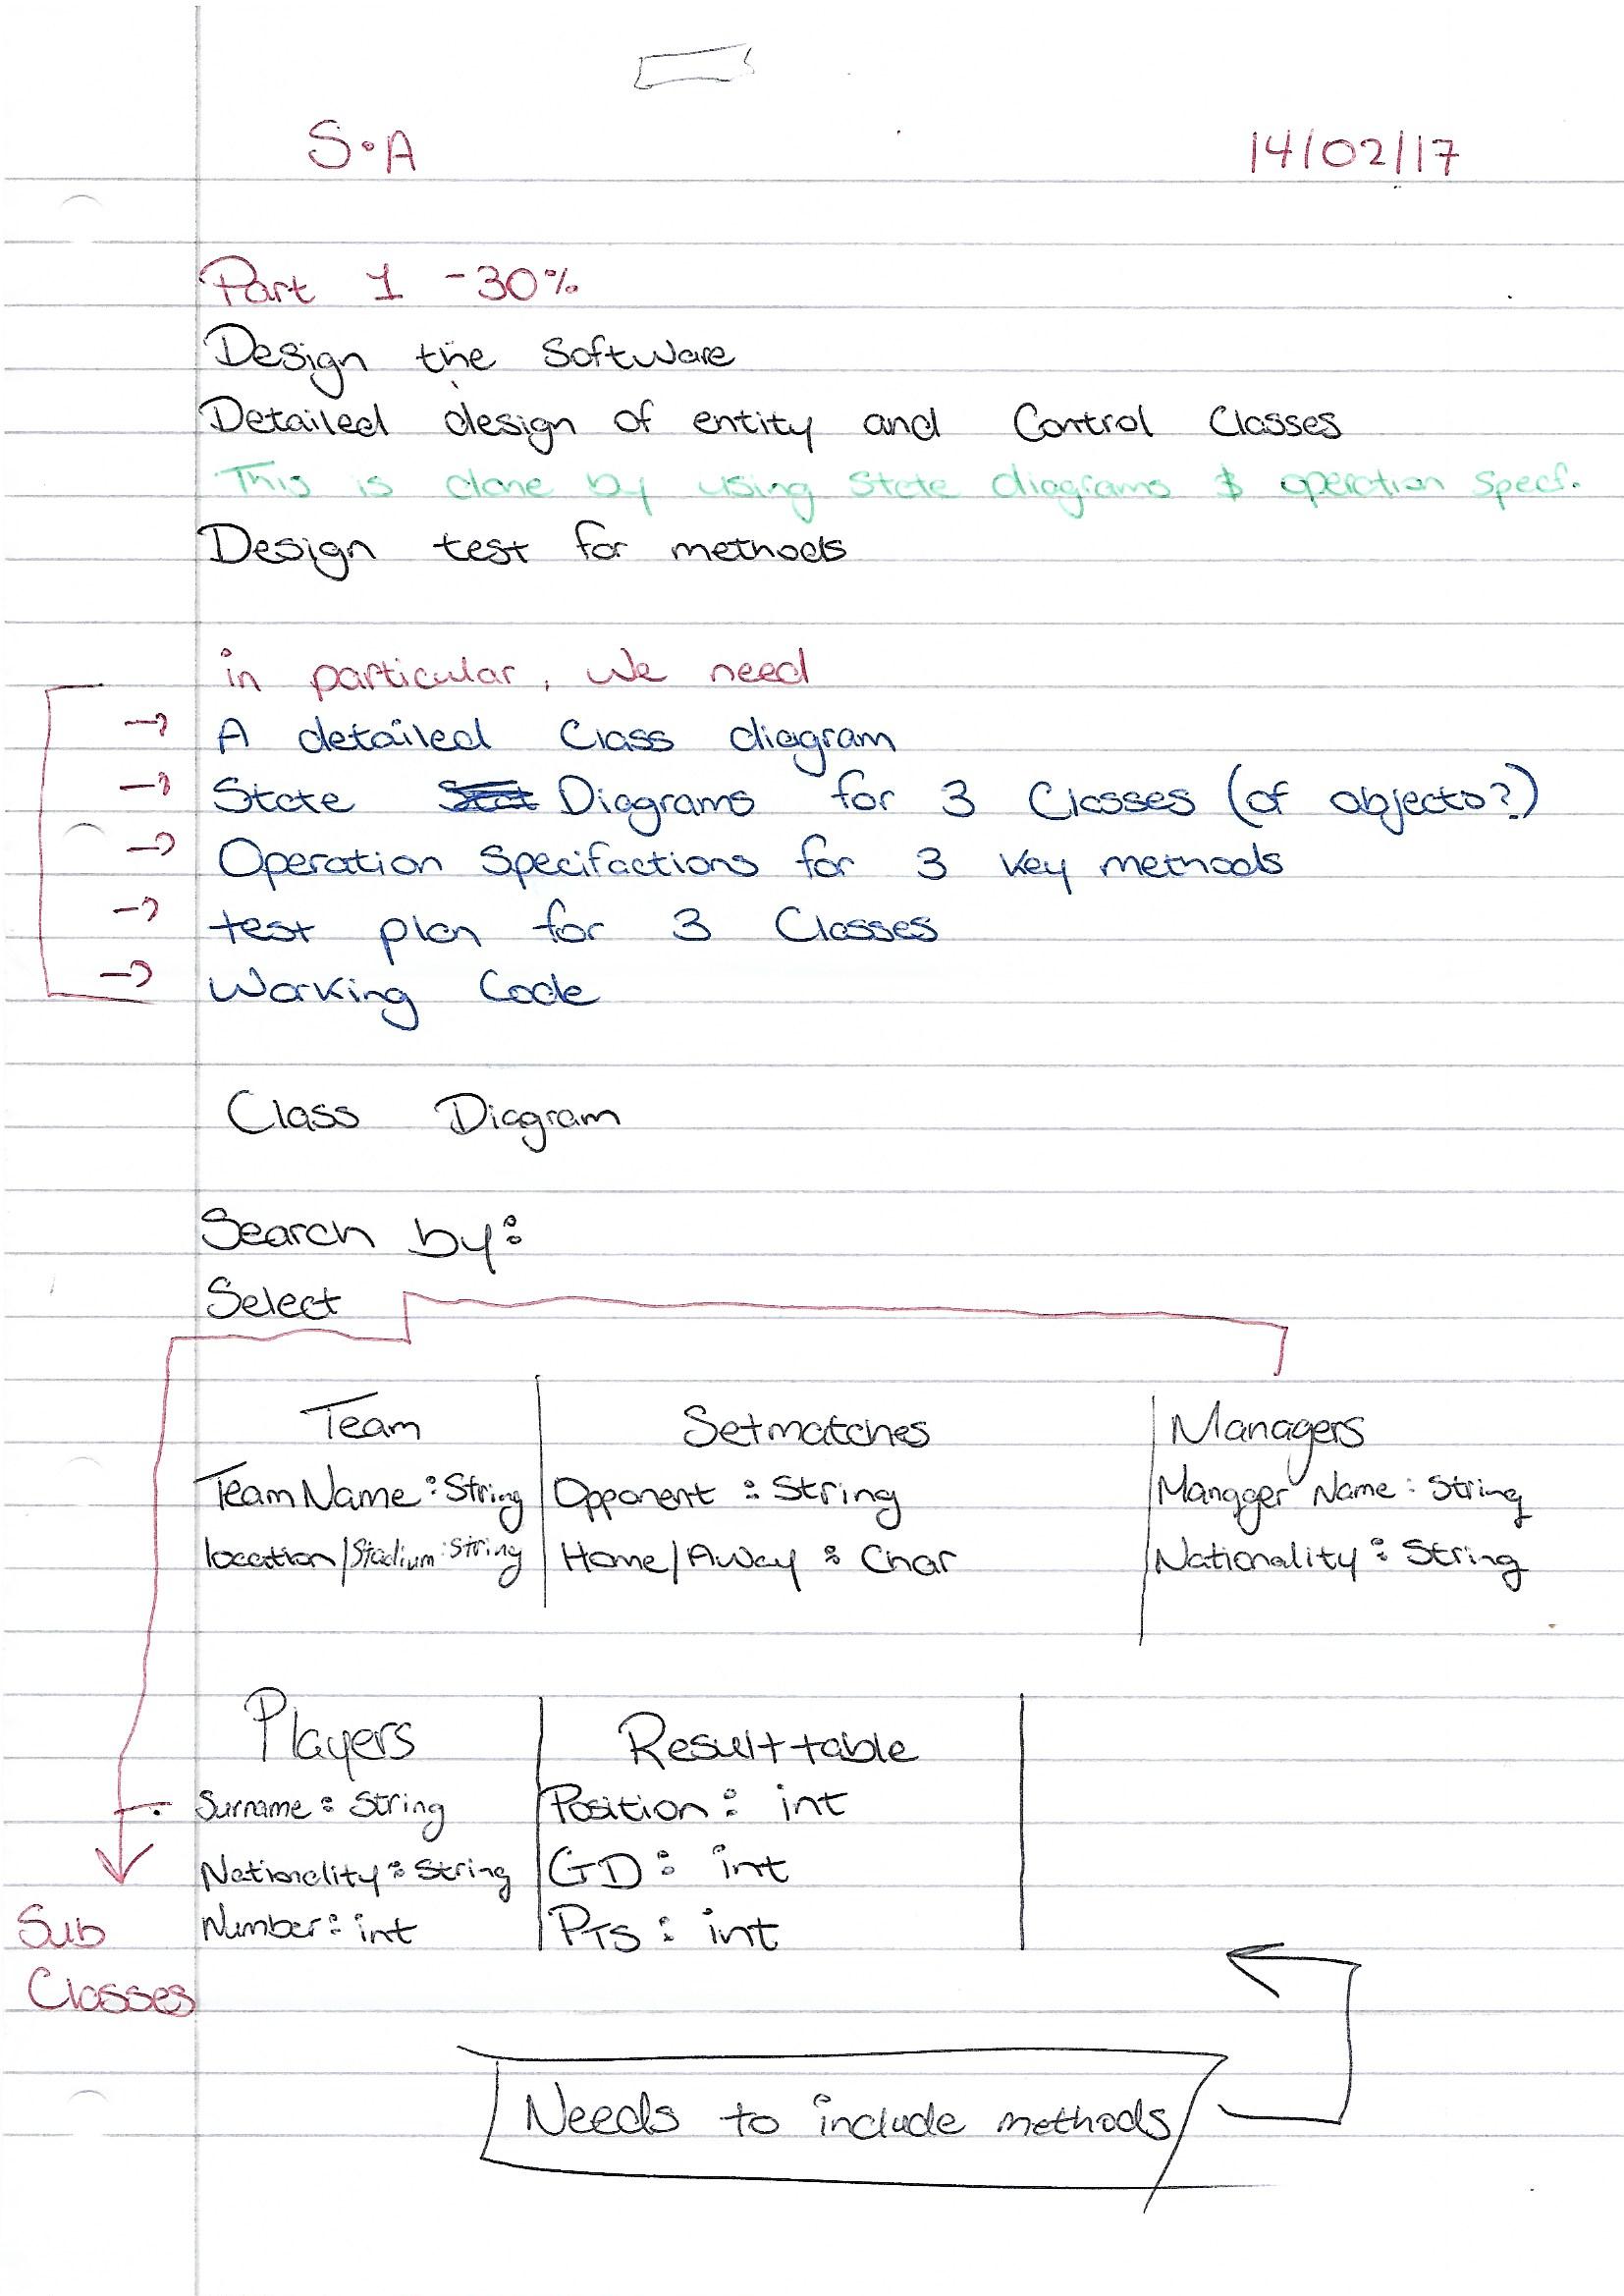 S.A 14/02/17
Part 1 - 30%
Design the Software
Detailed design of entity and Control Classes
This is done by using State diagrams & operation Specf.
Design test for methods
in particular, we need
→ A detailed Class diagram
→ State Diagrams for 3 Classes (of objects?)
→ Operation Specifactions for 3 key methods
→ test plan for 3 Classes
→ Working Code
Class Diagram
Search by:
Select
Team Setmatches Managers
Team Name : String Opponent : String Manager Name : String
location/Stadium : String Home/Away : Char Nationality : String
Players Result table
Surname : String Position : int
Nationality : String GD : int
Number : int PTS : int
Sub
Classes
Needs to include methods